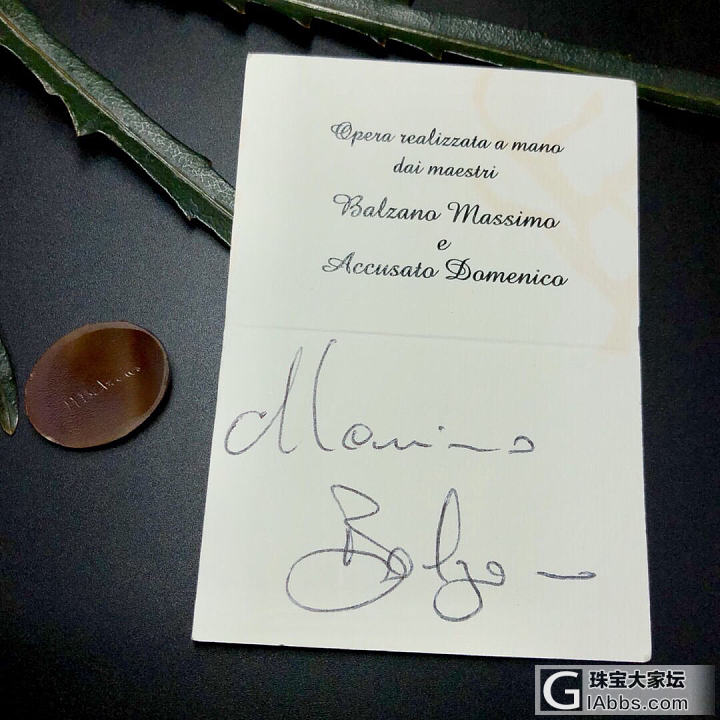 Opera realizzata a mano
dai maestri
Balzano Massimo
e
Accusato Domenico
Massimo
Balzano
珠宝大家坛
IAbbs.com